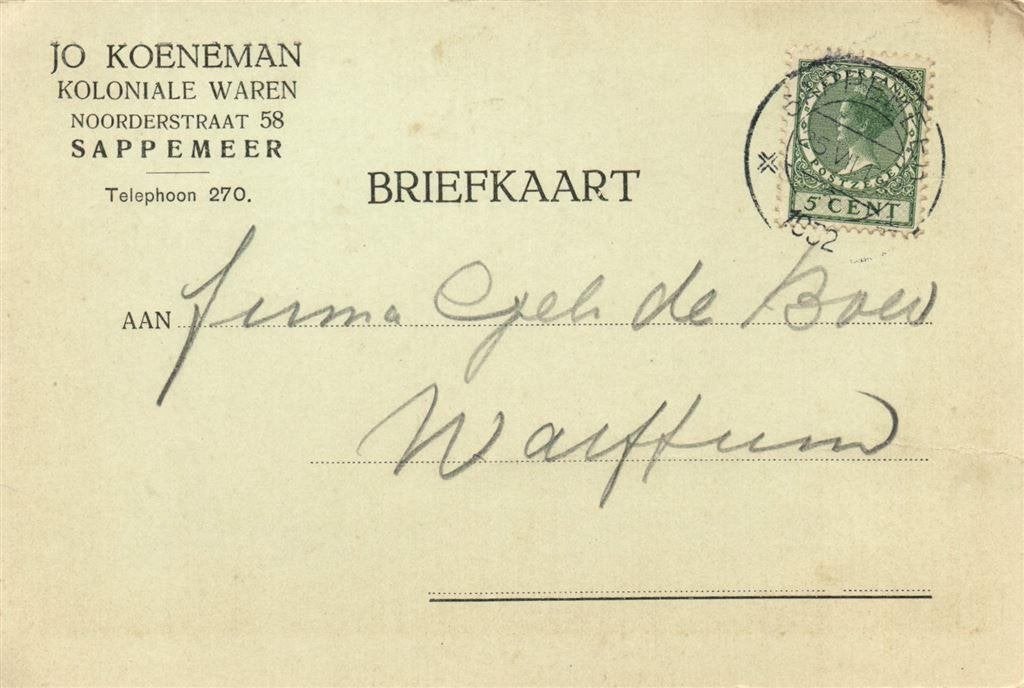 JO KOENEMAN
KOLONIALE WAREN
NOORDERSTRAAT 58
SAPPEMEER
Telephoon 270.
BRIEFKAART
NEDERLAND
POSTZEGEL
5 CENT
1932
AAN firma Gebr de Boer
Warffum